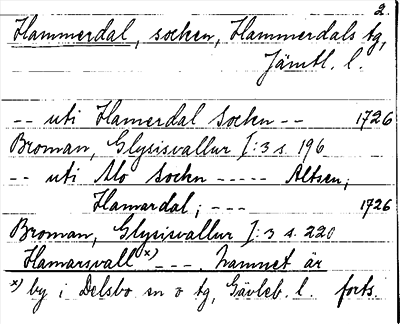 2.
Hammerdal, socken, Hammerdals tg,
Jämtl. l.
-- uti Hamerdal Sockn -- 1726
Broman, Glysisvallur I:3 s. 196
-- uti Mo Sockn ----- Altsen,
Hamardal; --- 1726
Broman, Glysisvallur I:3 s. 220
Hamarsvall x) --- Namnet är
x) by i Delsbo sn o tg, Gävleb. l. forts.